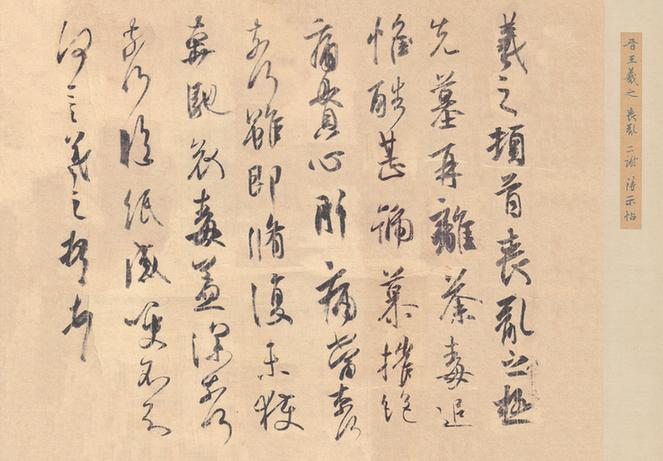 羲之頓首喪亂之極
先墓再離荼毒追
惟酷甚號慕摧絕
痛貫心肝痛當奈何
奈何雖即脩復未獲
奔馳哀毒益深奈何
奈何臨紙感哽不知
何言羲之頓首
晋王羲之 喪亂 二謝 得示帖